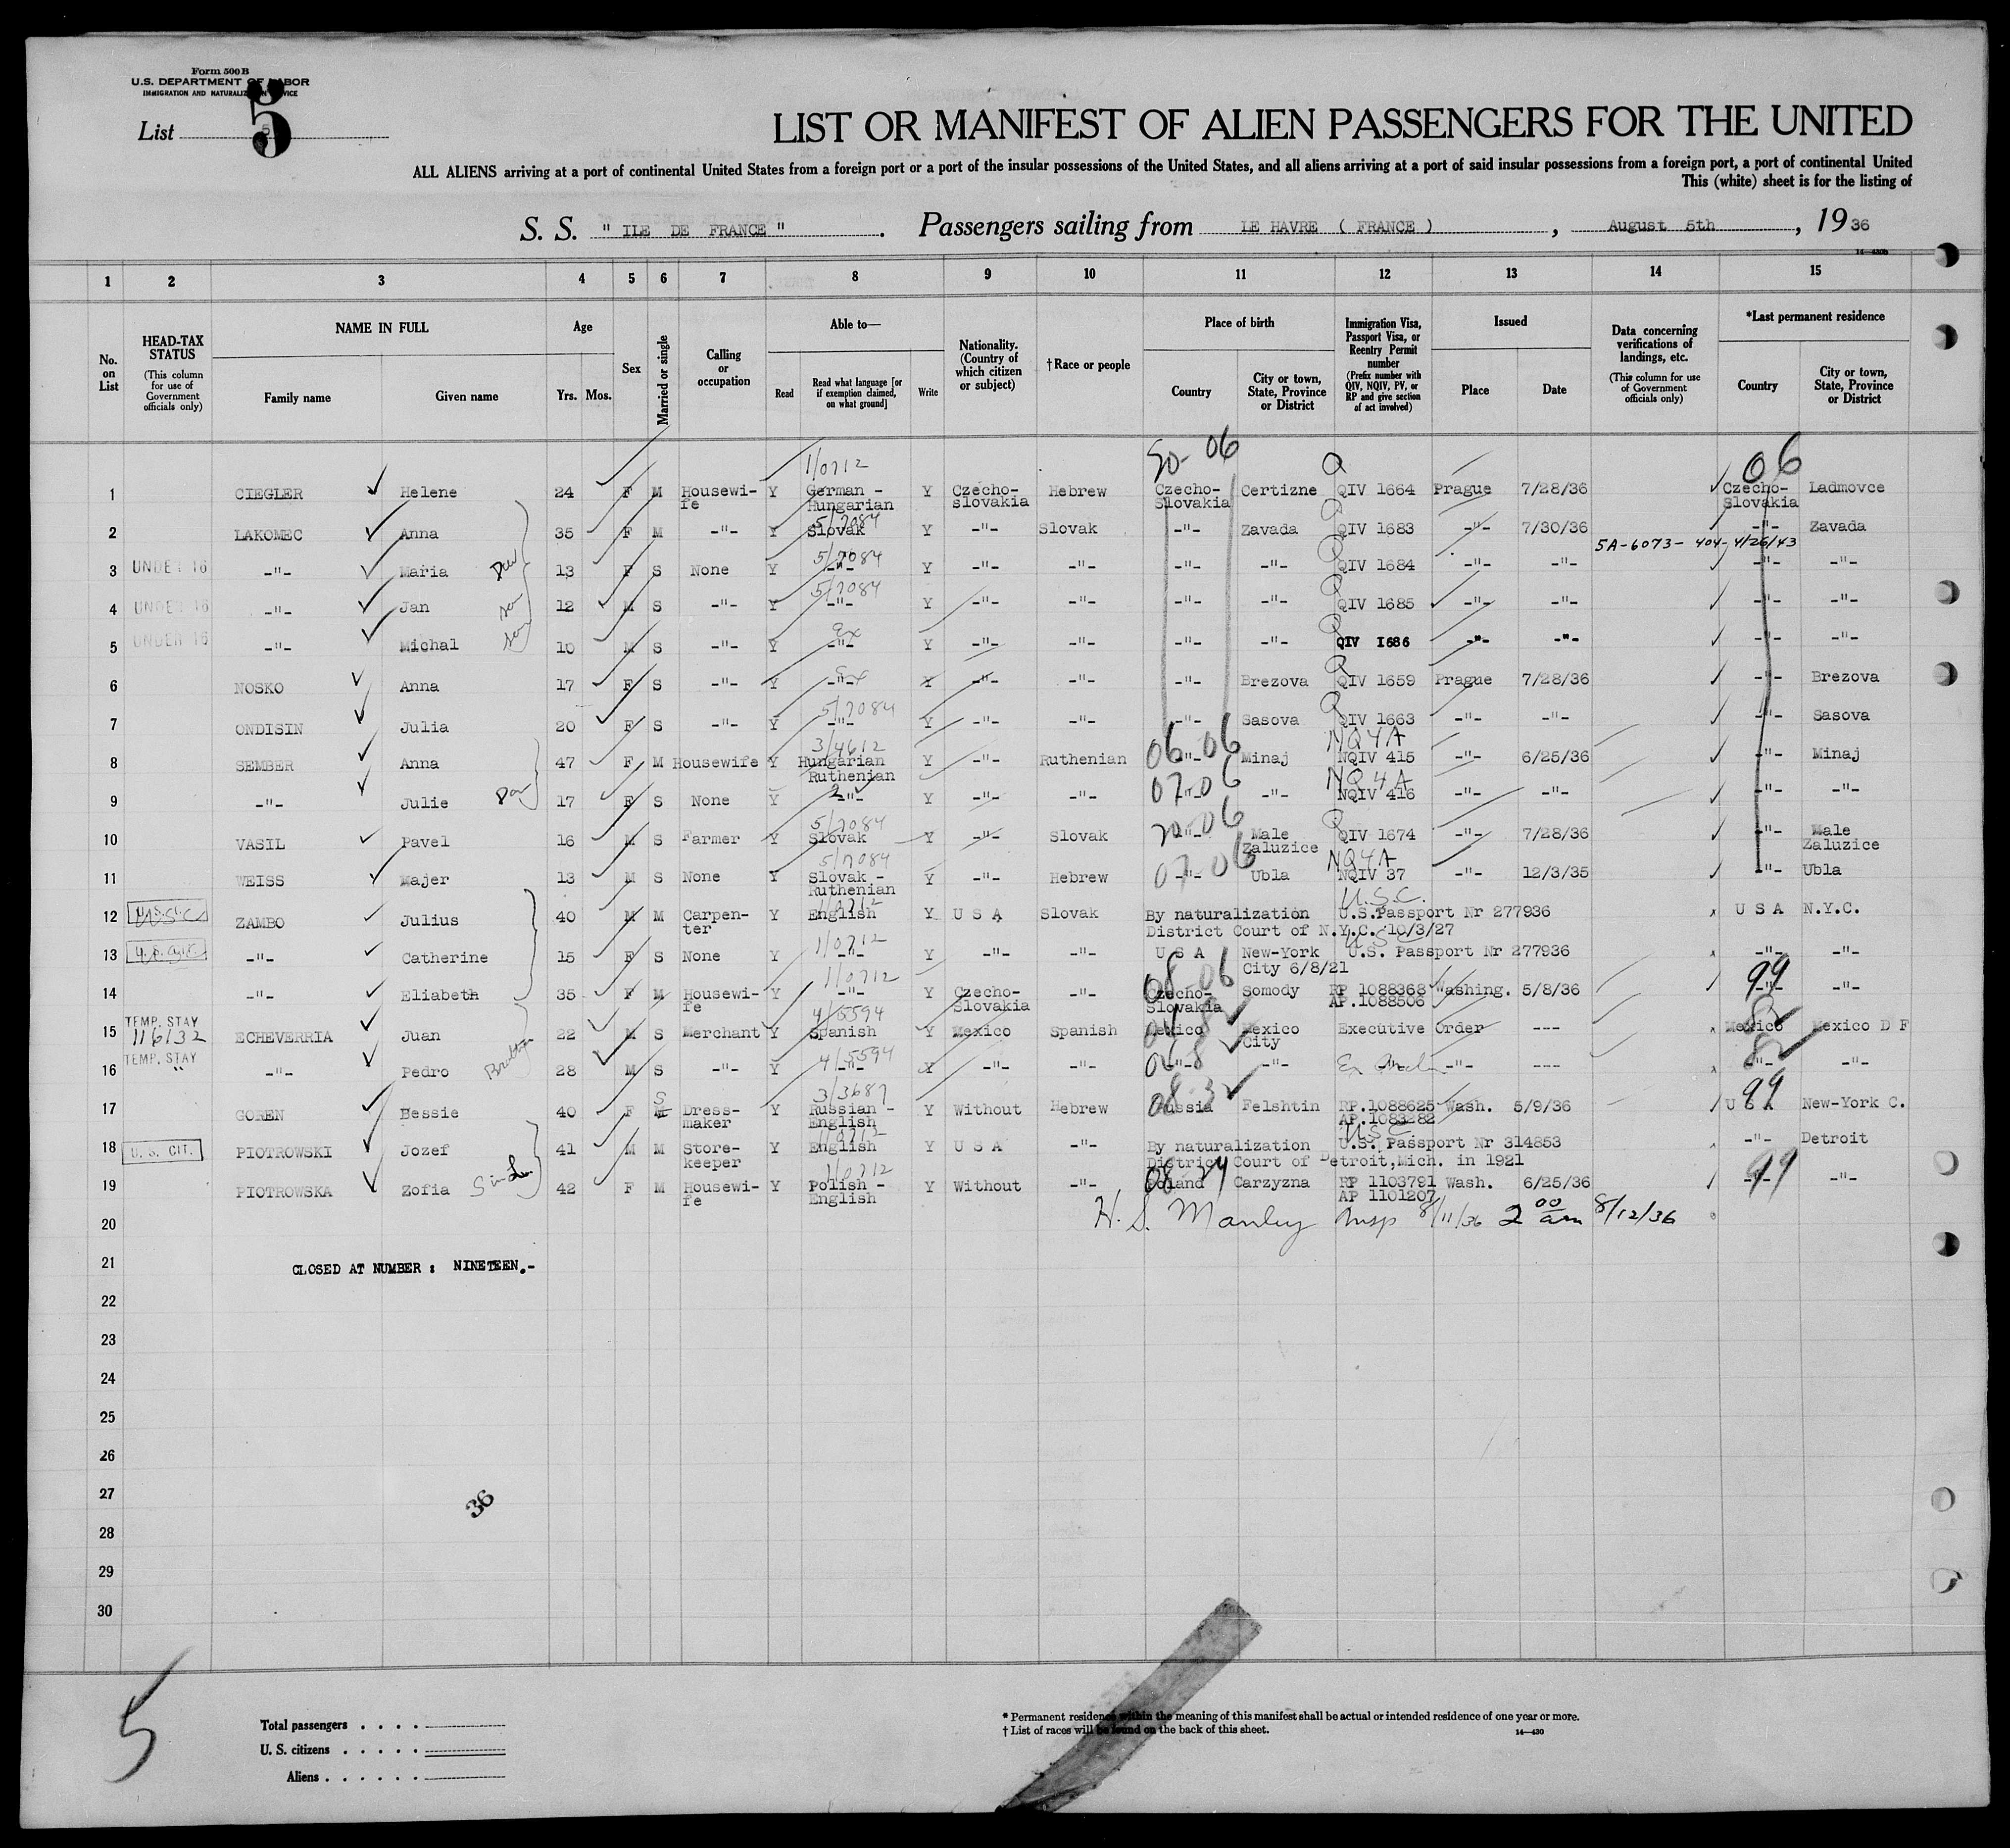 Form 500 B
U.S. DEPARTMENT OF LABOR
IMMIGRATION AND NATURALIZATION SERVICE
List 5
LIST OR MANIFEST OF ALIEN PASSENGERS FOR THE UNITED
ALL ALIENS arriving at a port of continental United States from a foreign port or a port of the insular possessions of the United States, and all aliens arriving at a port of said insular possessions from a foreign port, a port of continental United
This (white) sheet is for the listing of
S. S. " ILE DE FRANCE " . Passengers sailing from LE HAVRE ( FRANCE ) , August 5th , 19 36
14—430b
1 2 3 4 5 6 7 8 9 10 11 12 13 14 15
No. on List
HEAD-TAX STATUS (This column for use of Government officials only)
NAME IN FULL Family name Given name
Age Yrs. Mos.
Sex
Married or single
Calling or occupation
Able to— Read Read what language [or if exemption claimed, on what ground] Write
Nationality. (Country of which citizen or subject)
†Race or people
Place of birth Country City or town, State, Province or District
Immigration Visa, Passport Visa, or Reentry Permit number (Prefix number with QIV, NQIV, PV, or RP and give section of act involved)
Issued Place Date
Data concerning verifications of landings, etc. (This column for use of Government officials only)
*Last permanent residence Country City or town, State, Province or District
1/0712 50- 06 Q 06
1 CIEGLER Helene 24 F M Housewi-fe Y German - Hungarian Y Czecho-slovakia Hebrew Czecho-Slovakia Certizne QIV 1664 Prague 7/28/36 Czecho-Slovakia Ladmovce
5/7084 Q
2 LAKOMEC Anna 35 F M -"- Y Slovak Y -"- Slovak -"- Zavada QIV 1683 -"- 7/30/36 -"- Zavada
5A-6073- 404- 4/26/43
5/7084 Q
3 UNDER 16 -"- Maria Dau 13 F S None Y -"- Y -"- -"- -"- -"- QIV 1684 -"- -"- -"- -"-
5/7084 Q
4 UNDER 16 -"- Jan son 12 M S -"- Y -"- Y -"- -"- -"- -"- QIV 1685 -"- -"- -"- -"-
ex Q
5 UNDER 16 -"- Michal son 10 M S -"- Y -"- Y -"- -"- -"- -"- QIV I686 -"- -"- -"- -"-
Q
6 NOSKO Anna 17 F S -"- Y -"- Y -"- -"- -"- Brezova QIV 1659 Prague 7/28/36 -"- Brezova
5/7084 Q
7 ONDISIN Julia 20 F S -"- Y -"- Y -"- -"- -"- Sasova QIV 1663 -"- -"- -"- Sasova
3/4612 06-06 NQ4A
8 SEMBER Anna 47 F M Housewife Y Hungarian Ruthenian Y -"- Ruthenian -"- Minaj NQIV 415 -"- 6/25/36 -"- Minaj
07-06 NQ4A
9 -"- Julie Dau 17 F S None Y -"- Y -"- -"- -"- -"- NQIV 416 -"- -"- -"- -"-
5/7084 06 Q
10 VASIL Pavel 16 M S Farmer Y Slovak Y -"- Slovak -"- Male Zaluzice QIV 1674 -"- 7/28/36 -"- Male Zaluzice
5/7084 07-06 NQ4A
11 WEISS Majer 13 M S None Y Slovak - Ruthenian Y -"- Hebrew -"- Ubla NQIV 37 -"- 12/3/35 -"- Ubla
1/0712 U.S.C.
12 ZAMBO Julius 40 M M Carpen-ter Y English Y U S A Slovak By naturalization District Court of N.Y.C. 10/3/27 U.S.Passport Nr 277936 U S A N.Y.C.
1/0712 USC
13 -"- Catherine 15 F S None Y -"- Y -"- -"- U S A New-York City 6/8/21 U.S. Passport Nr 277936 -"- -"-
1/0712 08-06 99
14 -"- Eliabeth 35 F M Housewi-fe Y -"- Y Czecho-Slovakia -"- Czecho-Slovakia Somody RP 1088368 AP.1088506 Washing. 5/8/36 -"- -"-
4/5594
15 TEMP. STAY 116132 ECHEVERRIA Juan 22 M S Merchant Y Spanish Y Mexico Spanish Mexico Mexico City Executive Order --- Mexico Mexico D F
4/5594 06-8
16 TEMP. STAY " -"- Pedro Brother 28 M S -"- Y -"- Y -"- -"- -"- -"- -"- --- -"- -"-
3/3687 S 08 99
17 GOREN Bessie 40 F M Dress-maker Y Russian - English Y Without Hebrew Russia Felshtin RP.1088625 AP.1083282 Wash. 5/9/36 U S A New-York C.
1/0712 USC
18 U. S. CIT. PIOTROWSKI Jozef 41 M M Store-keeper Y English Y U S A -"- By naturalization District Court of Detroit,Mich. in 1921 U.S. Passport Nr 314853 -"- Detroit
1/0712 99
19 PIOTROWSKA Zofia 42 F M Housewi-fe Y Polish - English Y Without -"- Poland Carzyzna RP 1103791 AP 1101207 Wash. 6/25/36 -"- -"-
20 H. S. Manley Insp 8/11/36 2 00 am 8/12/36
21 CLOSED AT NUMBER : NINETEEN.-
22
23
24
25
26
27
36
28
29
30
5
Total passengers . . . .
U. S. citizens . . . . .
Aliens . . . . . .
* Permanent residence within the meaning of this manifest shall be actual or intended residence of one year or more.
† List of races will be found on the back of this sheet. 14—430